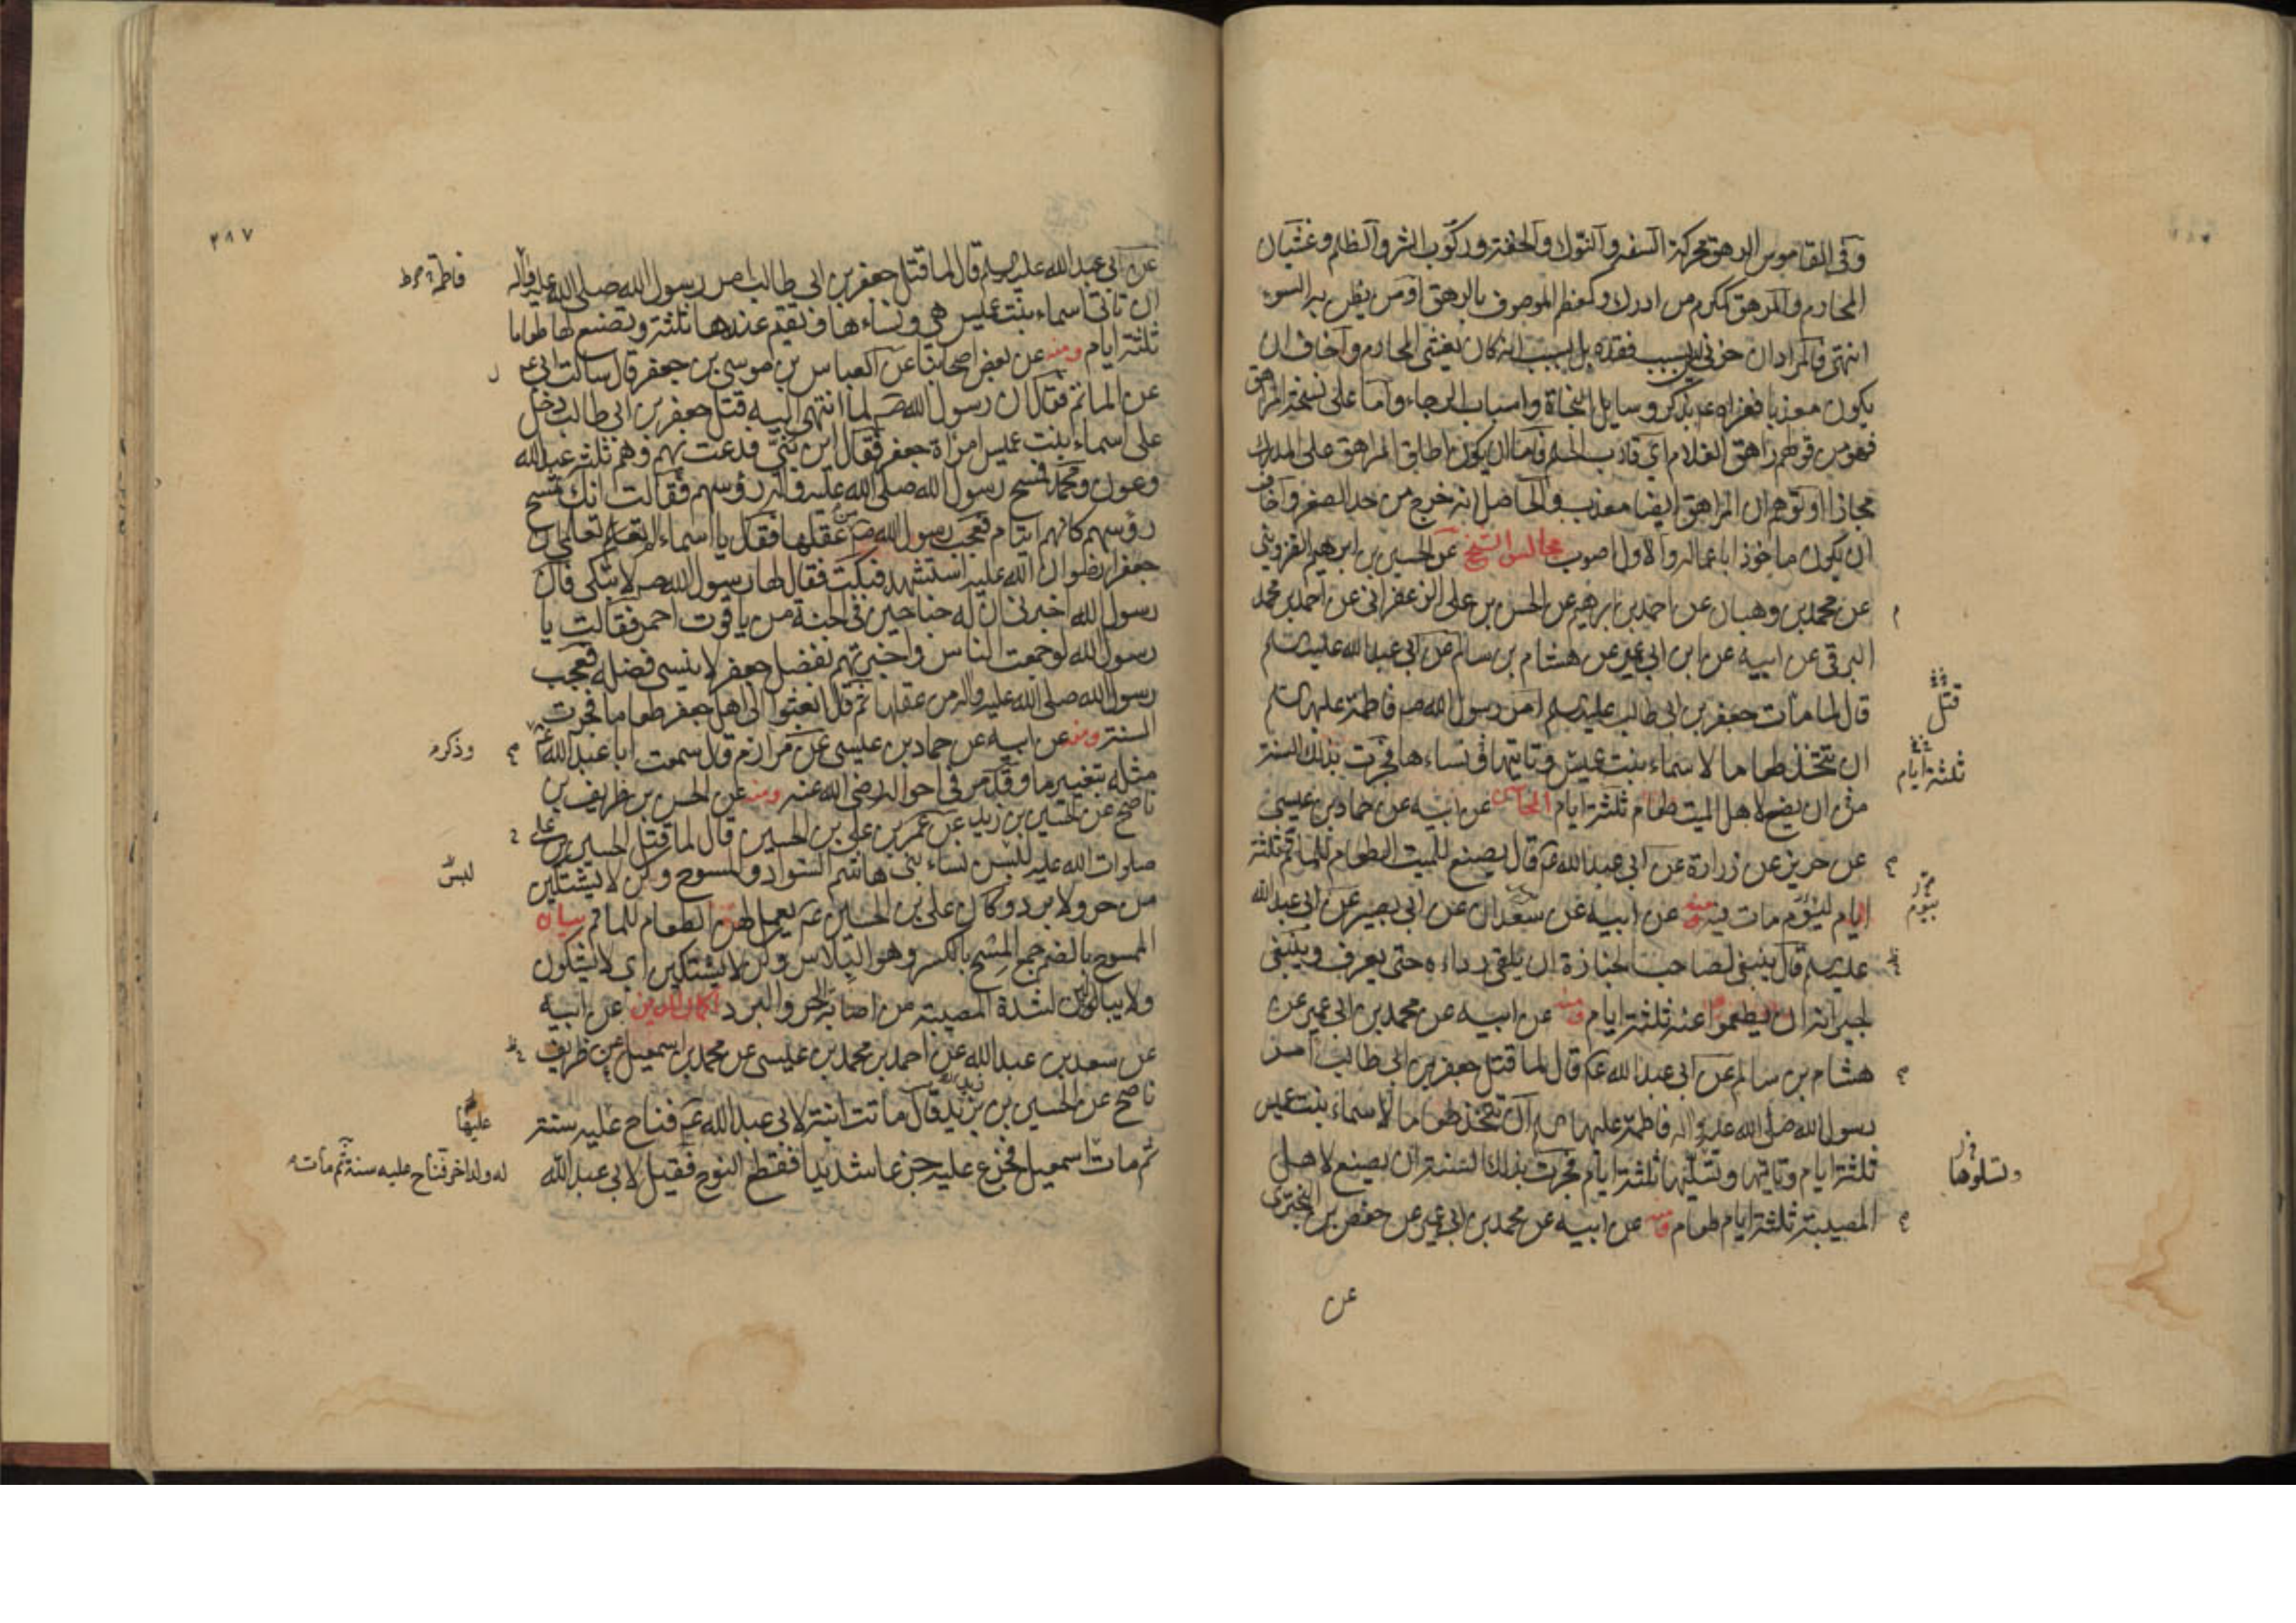 وفي القاموس الرهق محركة السفه والنوك والخفة وركوب الشر والظلم وغشيان
المحارم والمرهق كمكرم من ادرك وكمعظم الموصوف بالرهق او من يظن به السوء
انتهى فالمراد ان حزني ليس بسبب فقده بل بسبب انه كان يغشى المحارم واخاف ان
يكون معذبا فعزاه ع بذكر وسايل النجاة واسباب الرجاء واما على نسخة المراهق
فهو من قولهم راهق الغلام اي قارب الحلم فاما ان يكون اطلق المراهق على المدرك
مجازا او توهم ان المراهق ايضا معذب والحاصل انه خرج من حد الصغر واخاف
ان يكون ماخوذا باعماله والاول اصوب مجالس الشيخ عن الحسين بن ابرهيم القزويني
عن محمد بن وهبان عن احمد بن ابرهيم عن الحسن بن علي الزعفراني عن احمد بن محمد
البرقي عن ابيه عن ابن ابي عمير عن هشام بن سالم عن ابي عبد الله عليه السلم
قال لما مات جعفر بن ابي طالب عليه السلم امر رسول الله ص فاطمة عليها السلم
قتل
ان تتخذ طعاما لاسماء بنت عميس وتاتيها ونساءها فجرت بذلك السنة
ثلثة ايام
من ان يصنع لاهل الميت طعام ثلثة ايام المحاسن عن ابيه عن حماد بن عيسى
عن حريز عن زرارة عن ابي عبد الله ع قال يصنع للميت الطعام للماتم ثلثة
ايام ليوم مات فيه ومنه عن ابيه عن سعدان عن ابي بصير عن ابي عبد الله
بيوم
عليه السلم قال ينبغي لصاحب الجنازة ان يلقي رداءه حتى يعرف وينبغي
لجيرانه ان يطعموا عنه ثلثة ايام ومنه عن ابيه عن محمد بن ابي عمير عن
هشام بن سالم عن ابي عبد الله ع قال لما قتل جعفر بن ابي طالب امر
رسول الله صلى الله عليه واله فاطمة عليها ان تتخذ طعاما لاسماء بنت عميس
ثلثة ايام وتاتيها وتسليها ثلثة ايام فجرت بذلك السنة ان يصنع لاهل
وتسلوها
المصيبة ثلثة ايام طعام ومنه عن ابيه عن محمد بن ابي عمير عن حفص بن البختري
عن
٢٨٧
عن ابي عبد الله عليه السلم قال لما قتل جعفر بن ابي طالب امر رسول الله صلى الله عليه واله
فاطمة
ان تاتي اسماء بنت عميس هي ونساءها وتقيم عندها ثلثة وتصنع لها طعاما
ثلثة ايام ومنه عن بعض اصحابنا عن العباس بن موسى بن جعفر قال سالت ابي ع
عن الماتم فقال ان رسول الله ص لما انتهى اليه قتل جعفر بن ابي طالب دخل
على اسماء بنت عميس امراة جعفر فقال اين بني فدعت بهم وهم ثلثة عبد الله
وعون ومحمد فمسح رسول الله صلى الله عليه واله رؤسهم فقالت انك تمسح
رؤسهم كانهم ايتام فعجب رسول الله ص من عقلها فقال يا اسماء الم تعلمي ان
جعفرا رضوان الله عليه استشهد فبكت فقال لها رسول الله ص لا تبكي فان
رسول الله اخبرني ان له جناحين في الجنة من ياقوت احمر فقالت يا
رسول الله لو جمعت الناس واخبرتهم بفضل جعفر لا ينسى فضله فعجب
رسول الله صلى الله عليه واله من عقلها ثم قال ابعثوا الى اهل جعفر طعاما فجرت
السنة ومنه عن ابيه عن حماد بن عيسى عن مرازم قال سمعت ابا عبد الله ع
وذكر
مثله بتغيير ما وقد مر في احواله رضي الله عنه ومنه عن الحسن بن ظريف بن
ناصح عن الحسين بن زيد عن عمر بن علي بن الحسين قال لما قتل الحسين بن علي
صلوات الله عليه لبسن نساء بني هاشم السواد والمسوح وكن لا يشتكين
لبس
من حر ولا برد وكان علي بن الحسين ع يعمل لهن الطعام للماتم بيان
المسوح بالضم جمع المسح بالكسر وهو البلاس وكن لا يشتكين اي لا يشكون
ولا يبالين لشدة المصيبة من اصابة الحر والبرد اكمال الدين عن ابيه
عن سعد بن عبد الله عن احمد بن محمد بن عيسى عن محمد بن اسمعيل عن ظريف
ناصح عن الحسين بن زيد قال ماتت ابنة لابي عبد الله ع فناح عليه سنة
عليها
ثم مات اسمعيل فجزع عليه جزعا شديدا فقطع النوح فقيل لابي عبد الله
له ولد اخر فناح عليه سنة ثم مات